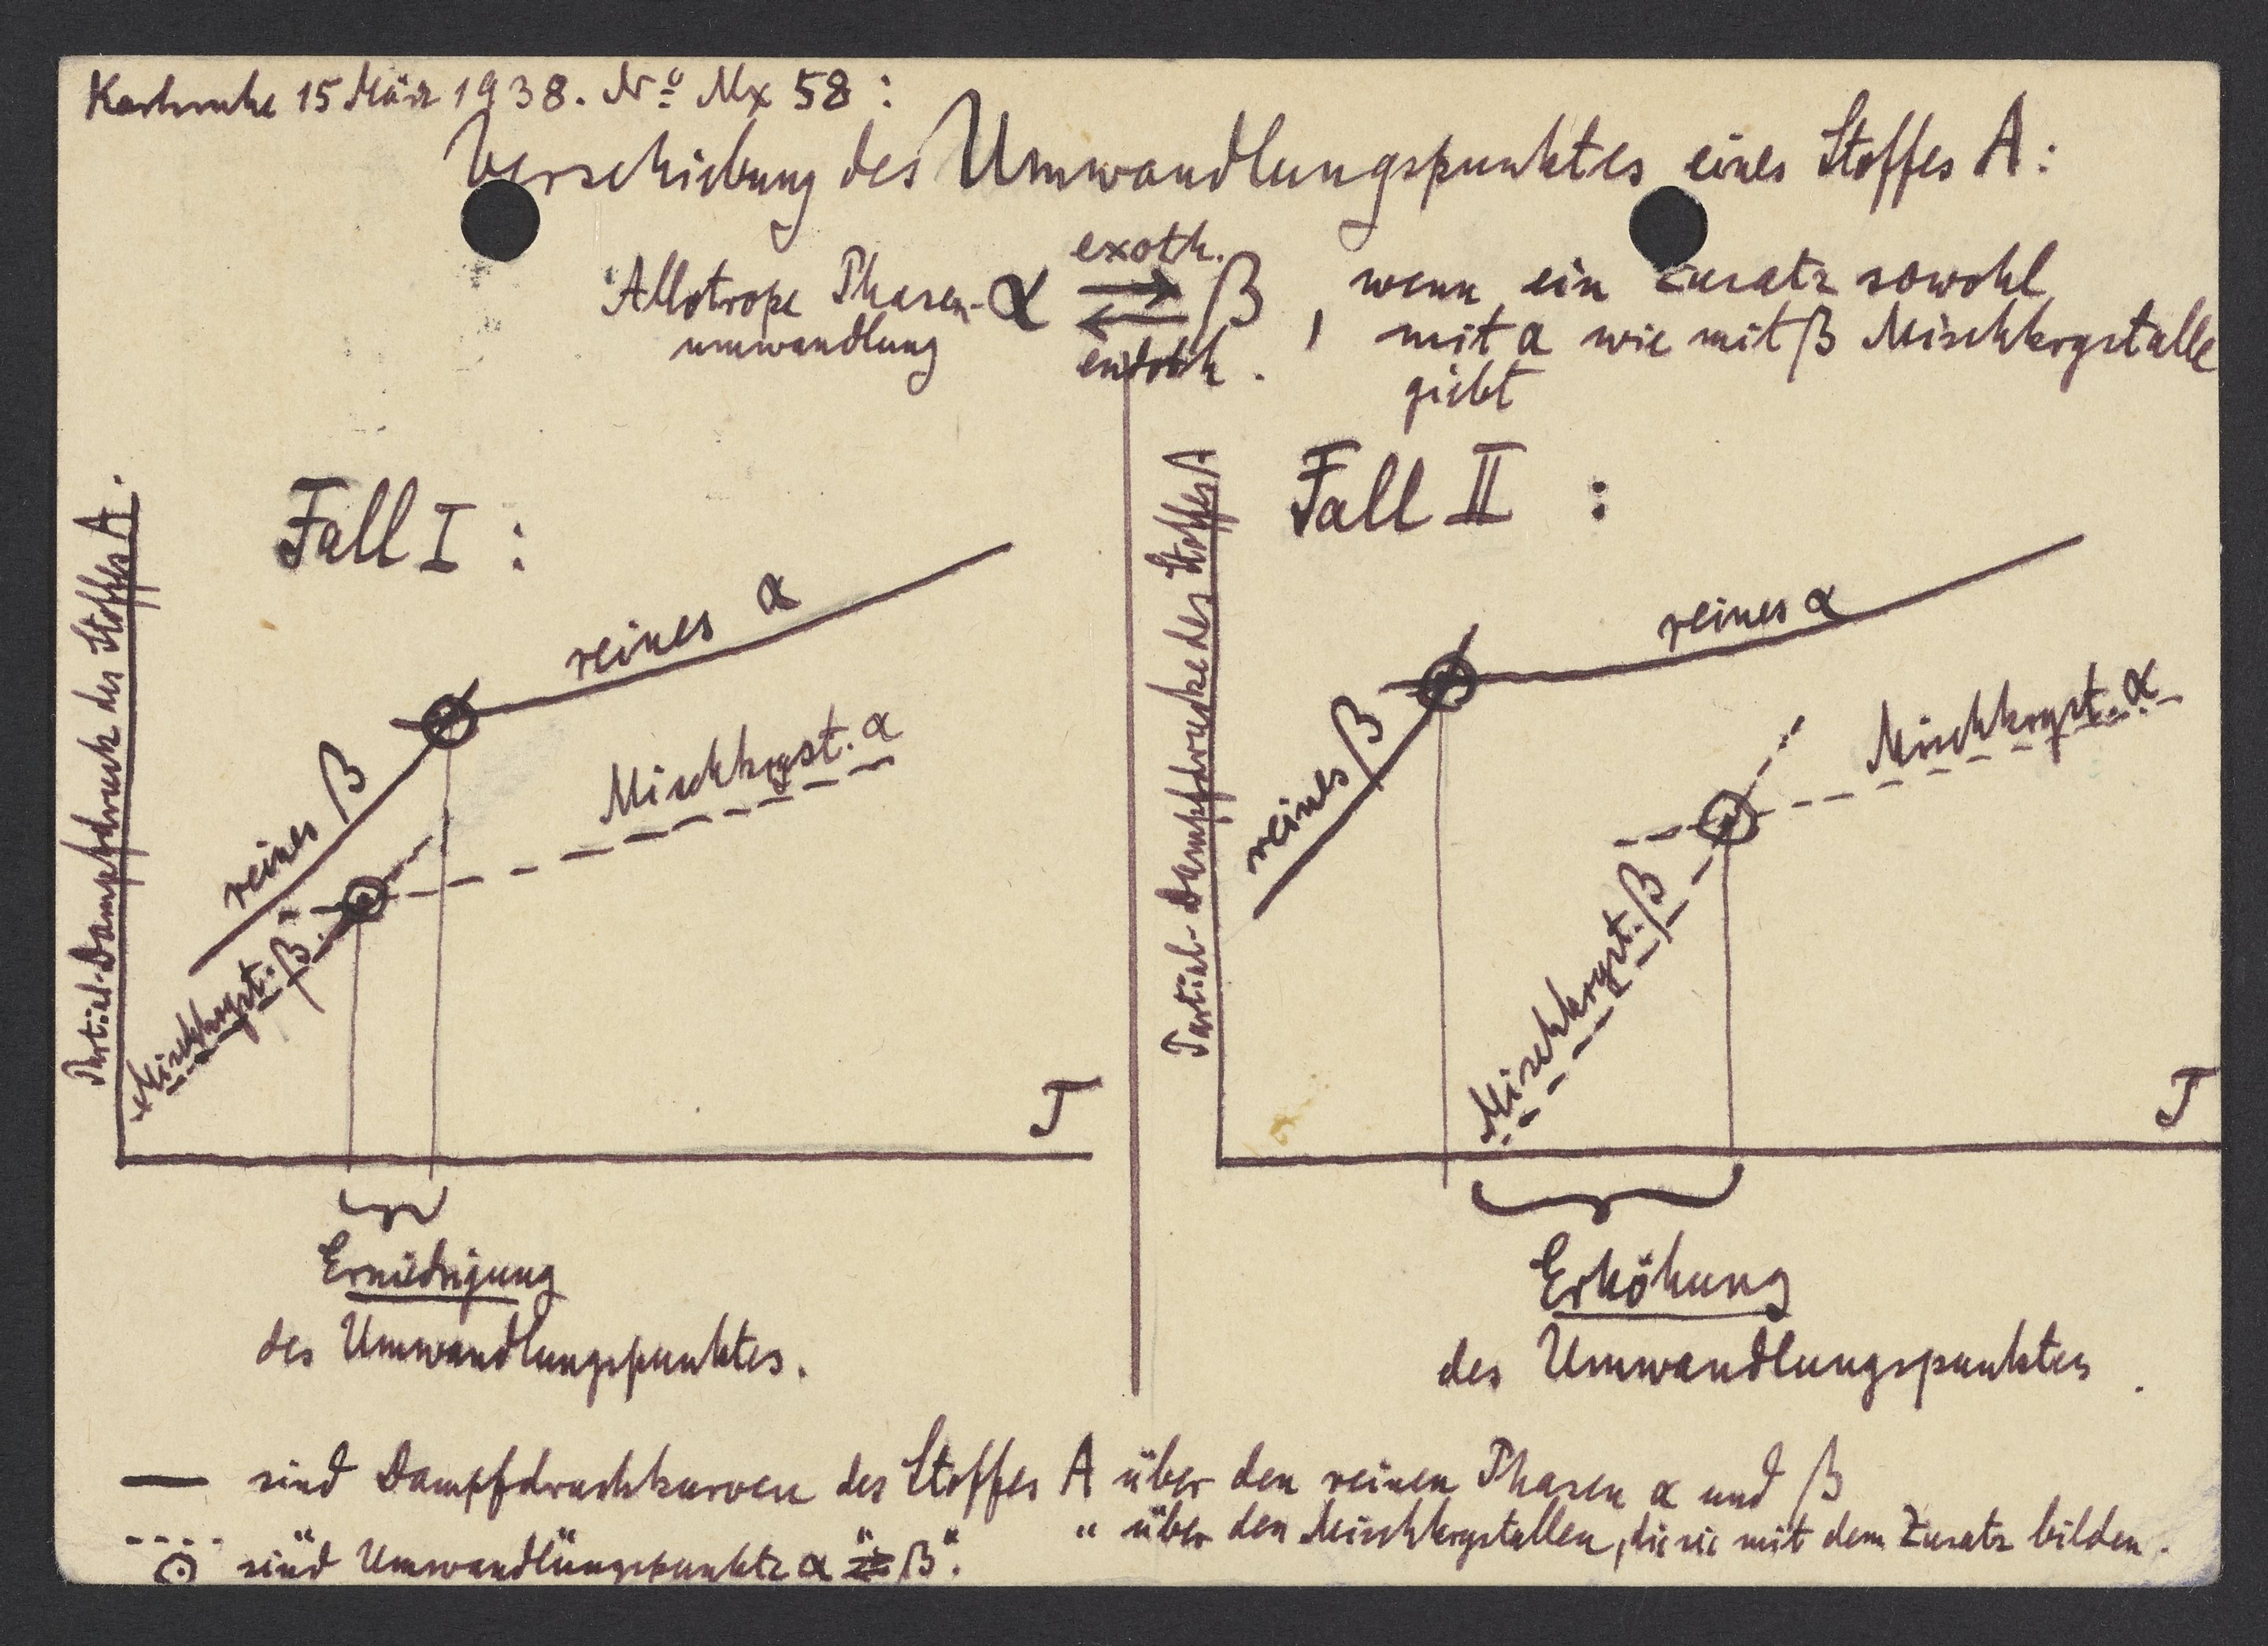 Karlsruhe 15 März 1938. Nº Mx 58:
Verschiebung des Umwandlungspunktes eines Stoffes A:
Allotrope Phasen-
umwandlung
α ⇌ β
exoth.
endoth.
, wenn ein Zusatz sowohl
mit α wie mit β Mischkrystalle
giebt
Fall I:
Partial-Dampfdruck des Stoffes A.
reines α
reines β
Mischkryst. α
Mischkryst. β
T
Erniedrigung
des Umwandlungspunktes.
Fall II:
Partial-Dampfdrucke des Stoffes A
reines α
reines β
Mischkryst. α
Mischkryst. β
T
Erhöhung
des Umwandlungspunktes.
— sind Dampfdruckkurven des Stoffes A über den reinen Phasen α und β
---- " " " " über den Mischkrystallen, die sie mit dem Zusatz bilden.
⊙ sind Umwandlungspunkte α ⇌ β.